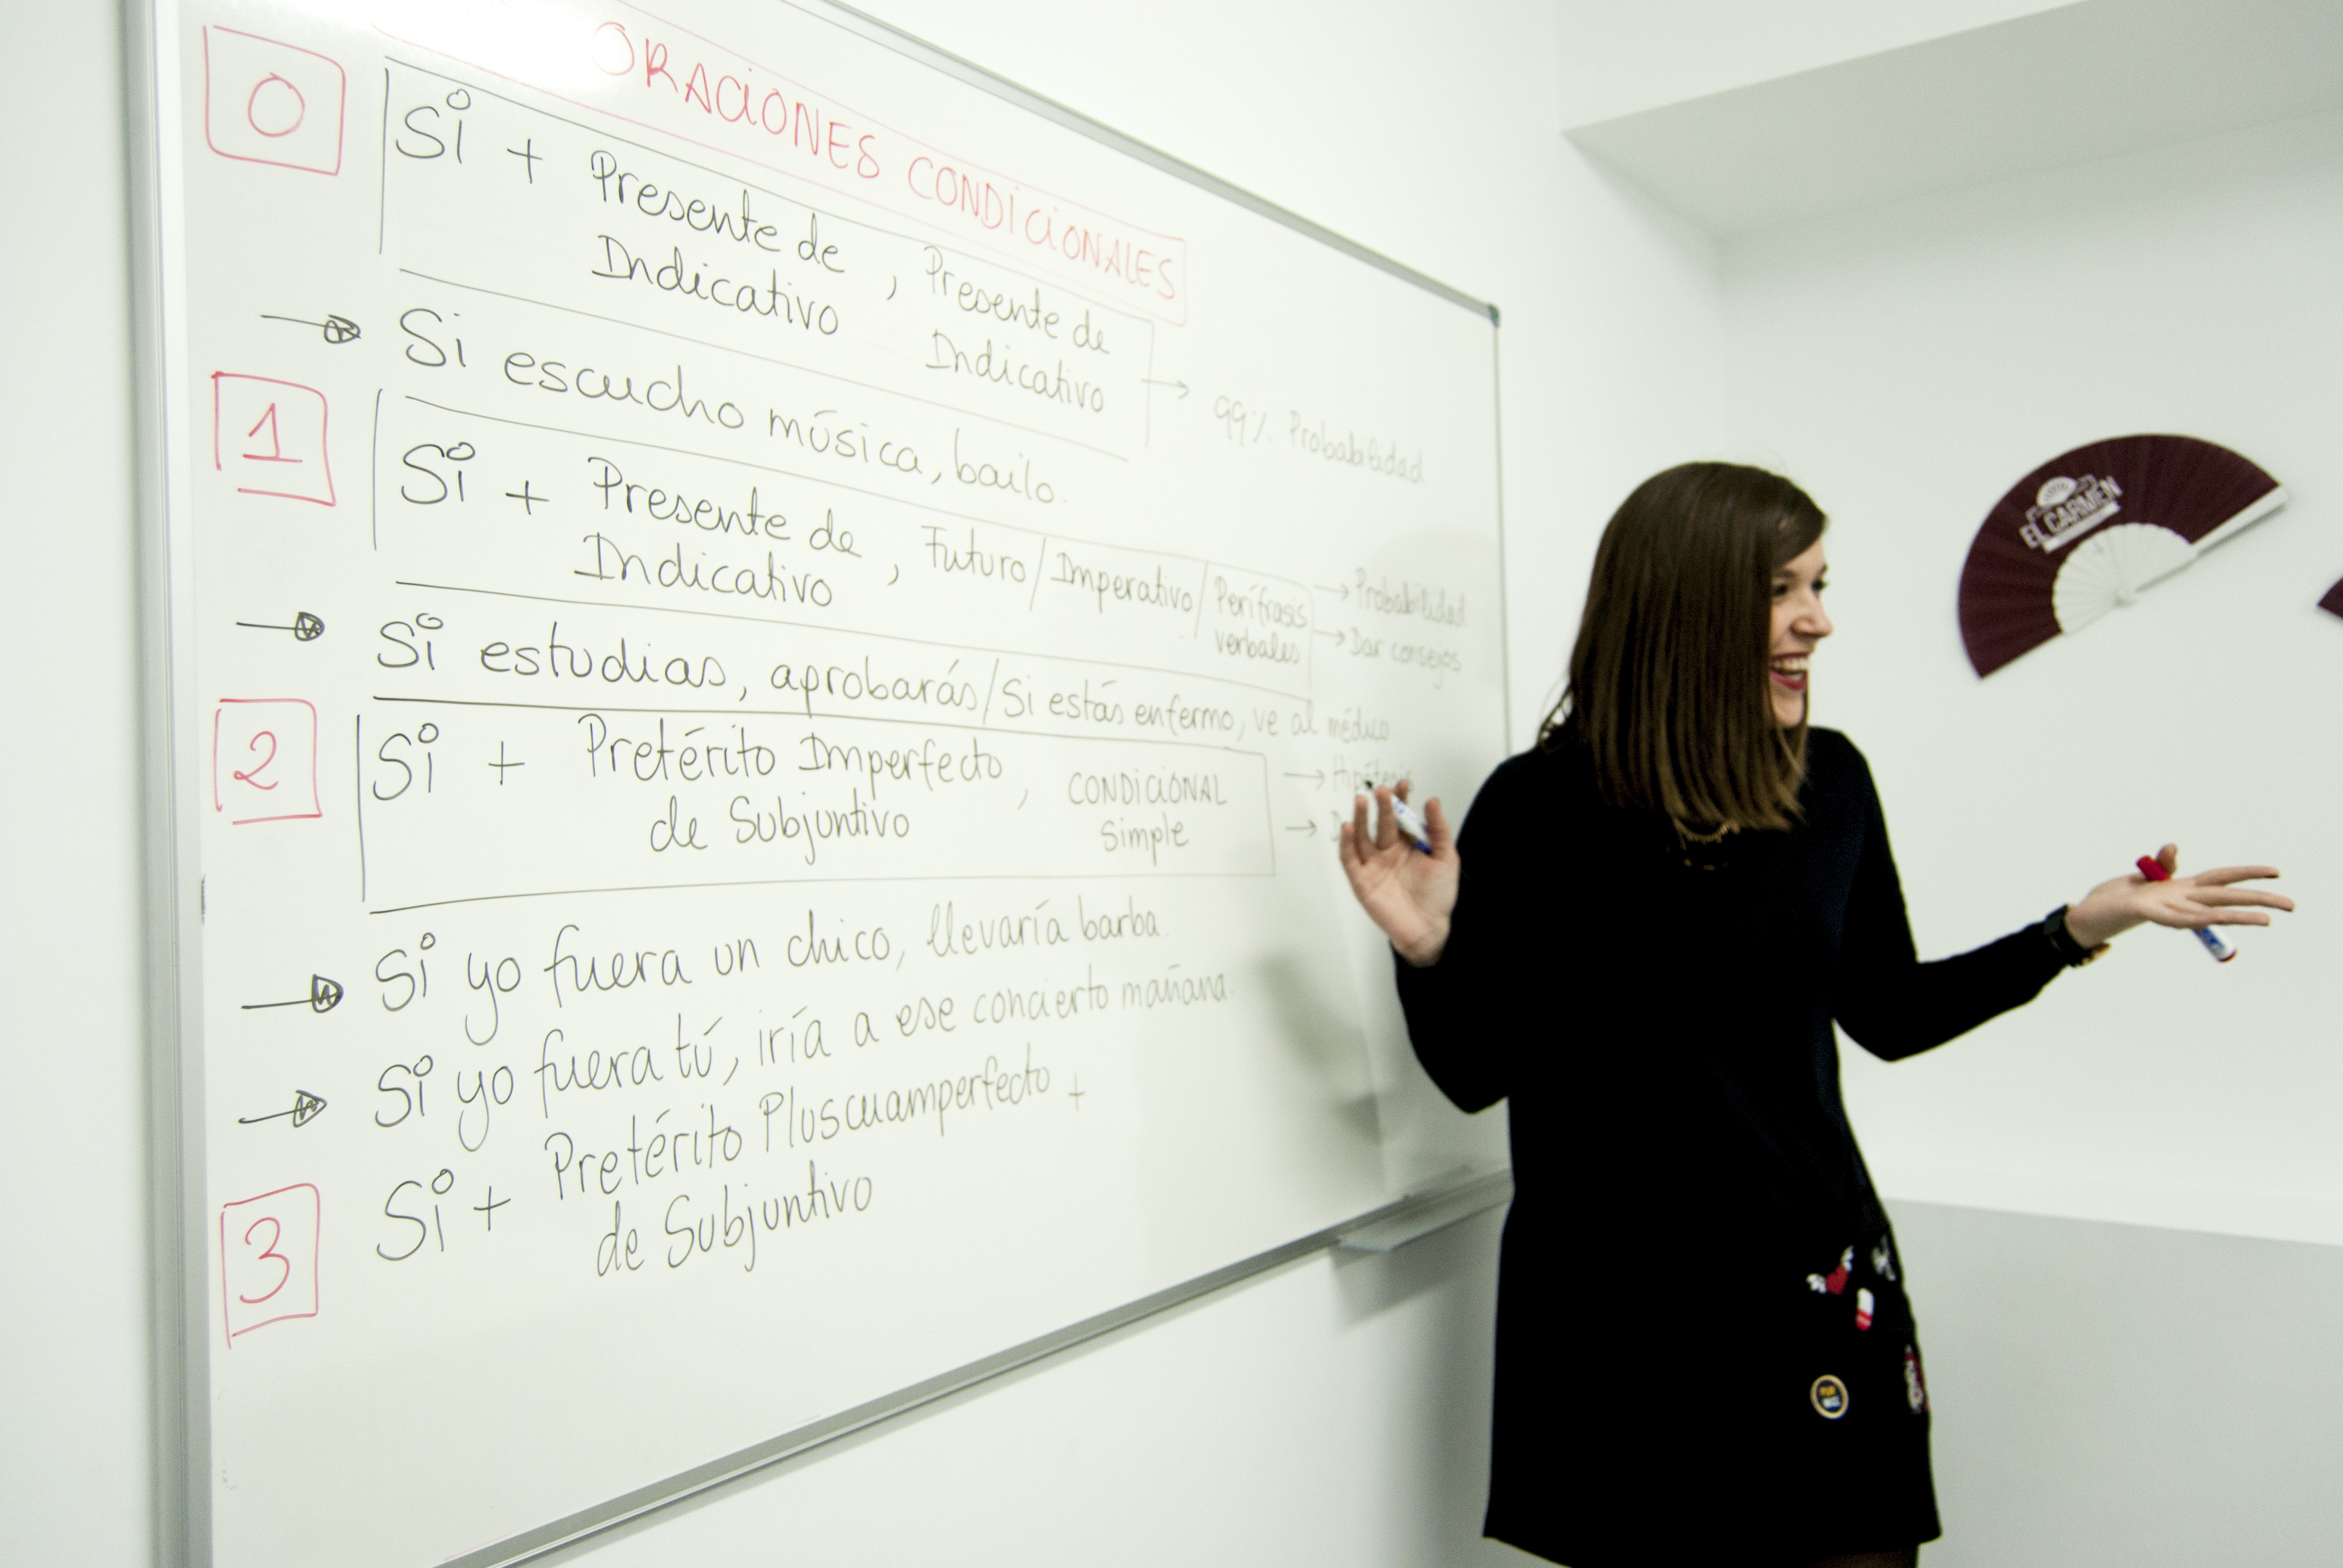 ORACIONES CONDICIONALES
0
Si + Presente de Indicativo, Presente de Indicativo → 99% Probabilidad
Si escucho música, bailo.
1
Si + Presente de Indicativo, Futuro/Imperativo/Perífrasis verbales
→ Probabilidad
→ Dar consejos
Si estudias, aprobarás/Si estás enfermo, ve al médico.
2
Si + Pretérito Imperfecto de Subjuntivo, CONDICIONAL simple
→ Hipótesis
→
Si yo fuera un chico, llevaría barba.
Si yo fuera tú, iría a ese concierto mañana.
3
Si + Pretérito Pluscuamperfecto de Subjuntivo +
EL CARMEN